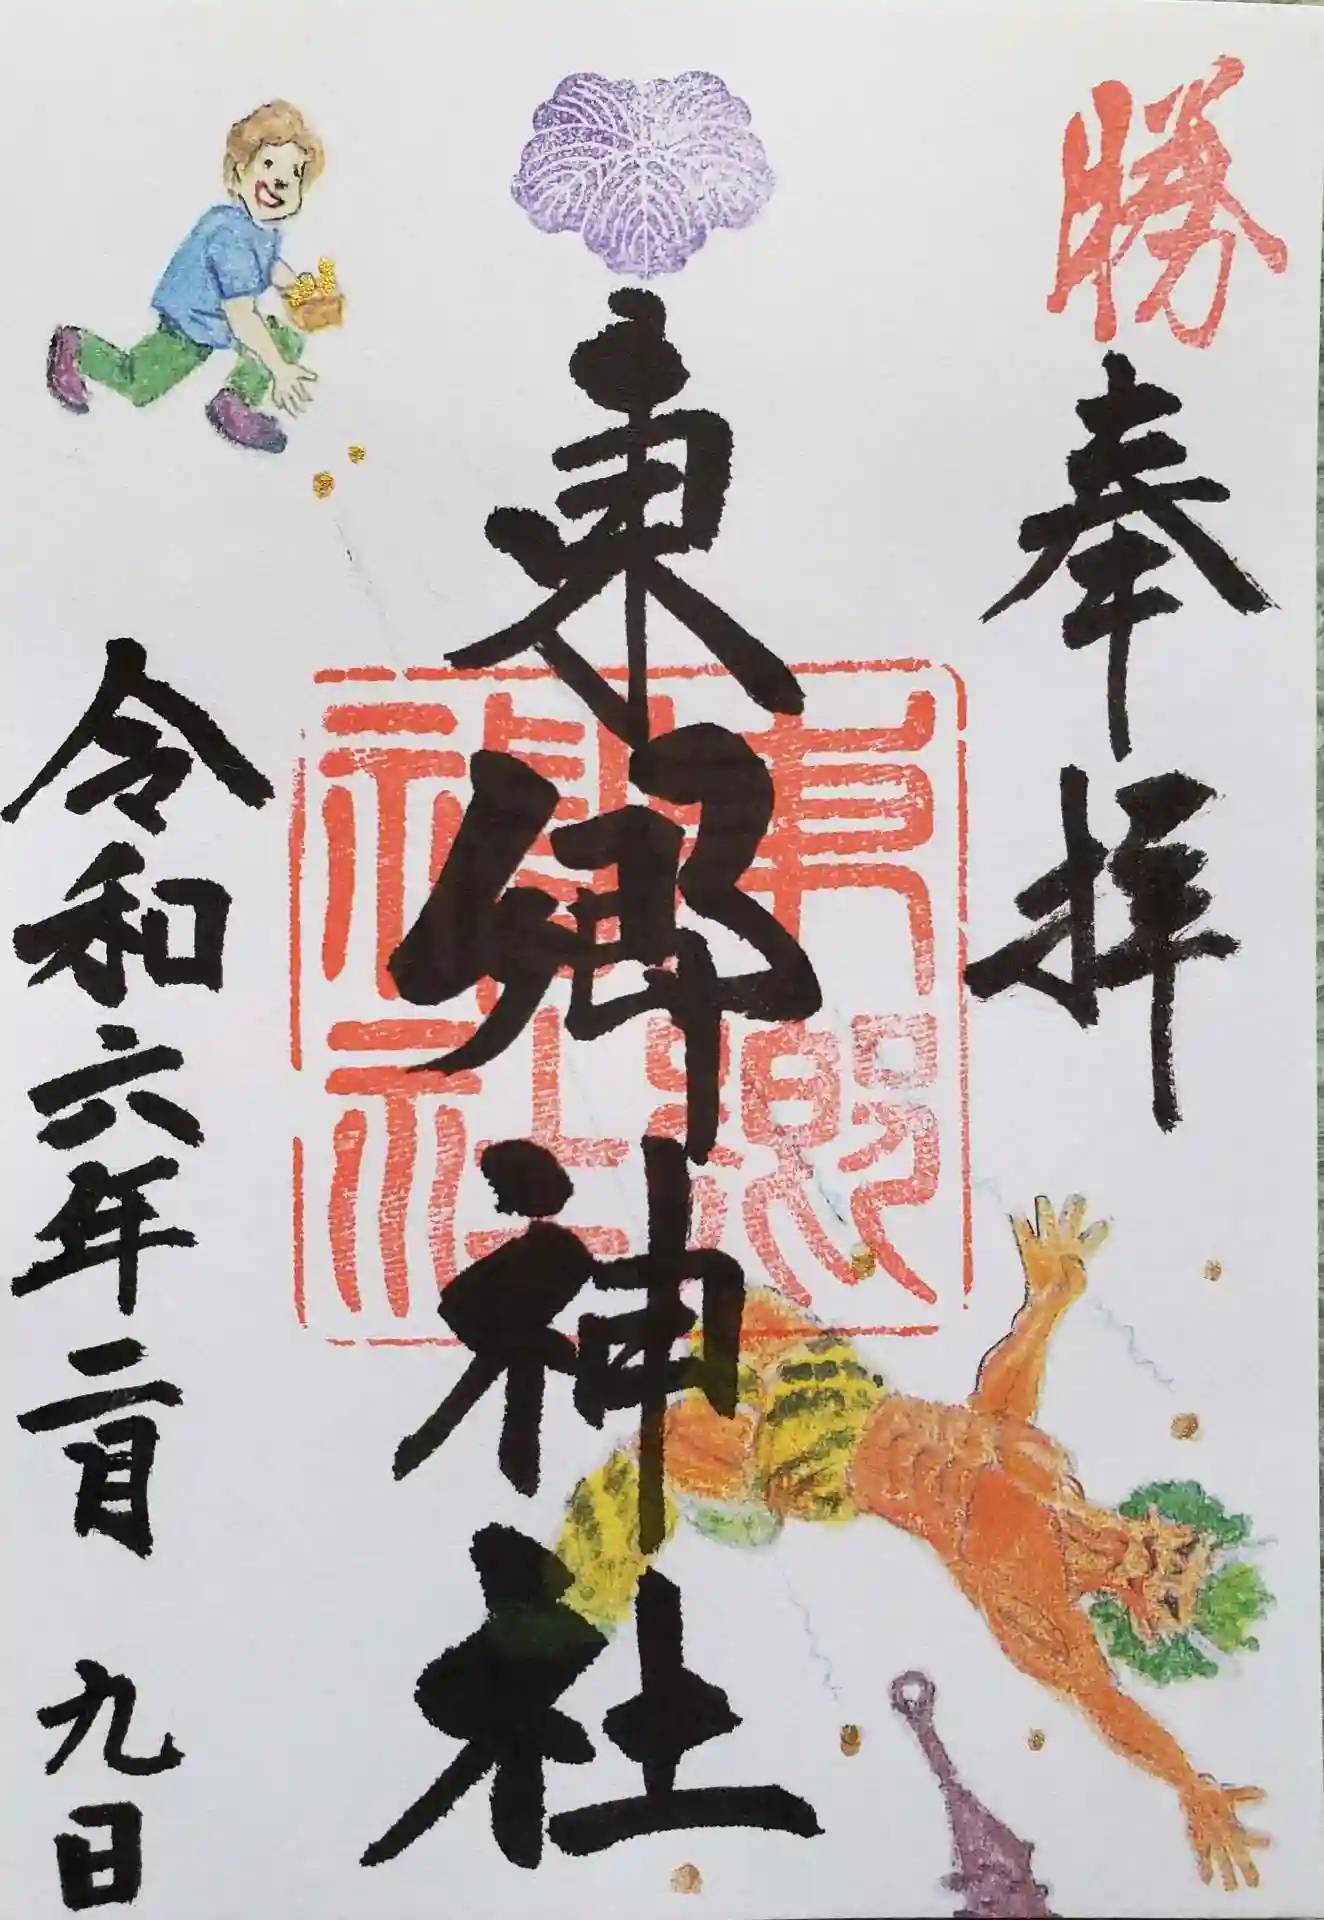 勝
奉拝
東郷神社
東郷神社
令和六年二月九日